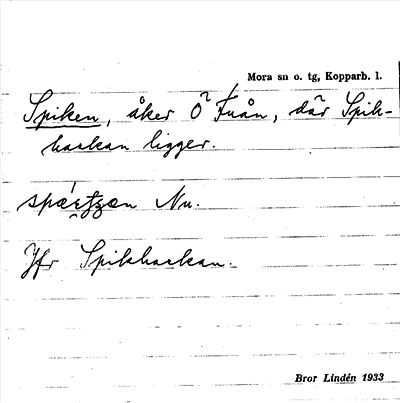 Mora sn o. tg, Kopparb. l.
Spiken, åker Ö Fuån, där Spik-
backan ligger.
Nu.
Jfr Spikbackan.
Bror Lindén 1933